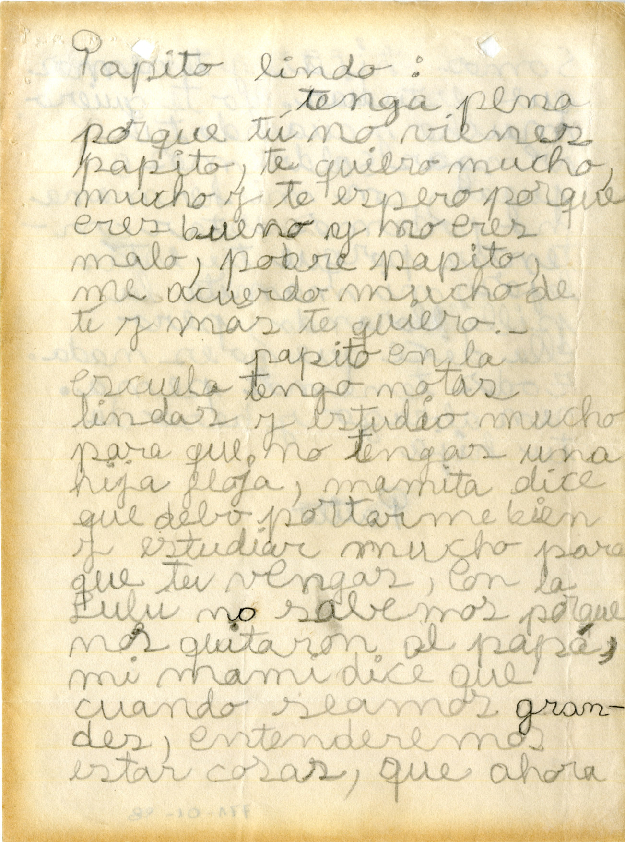 Papito lindo :
tenga pena
porque tú no vienes
papito, te quiero mucho,
mucho y te espero porque
eres bueno y no eres
malo, pobre papito,
me acuerdo mucho de
tí y mas te quiero.-
papito en la
escuela tengo notas
lindas y estudio mucho
para que no tengas una
hija floja, mamita dice
que debo portarme bien
y estudiar mucho para
que tu vengas, con la
Lulu no sabemos porque
nos quitaron al papá,
mi mami dice que
cuando seamos gran-
des, entenderemos
estas cosas, que ahora